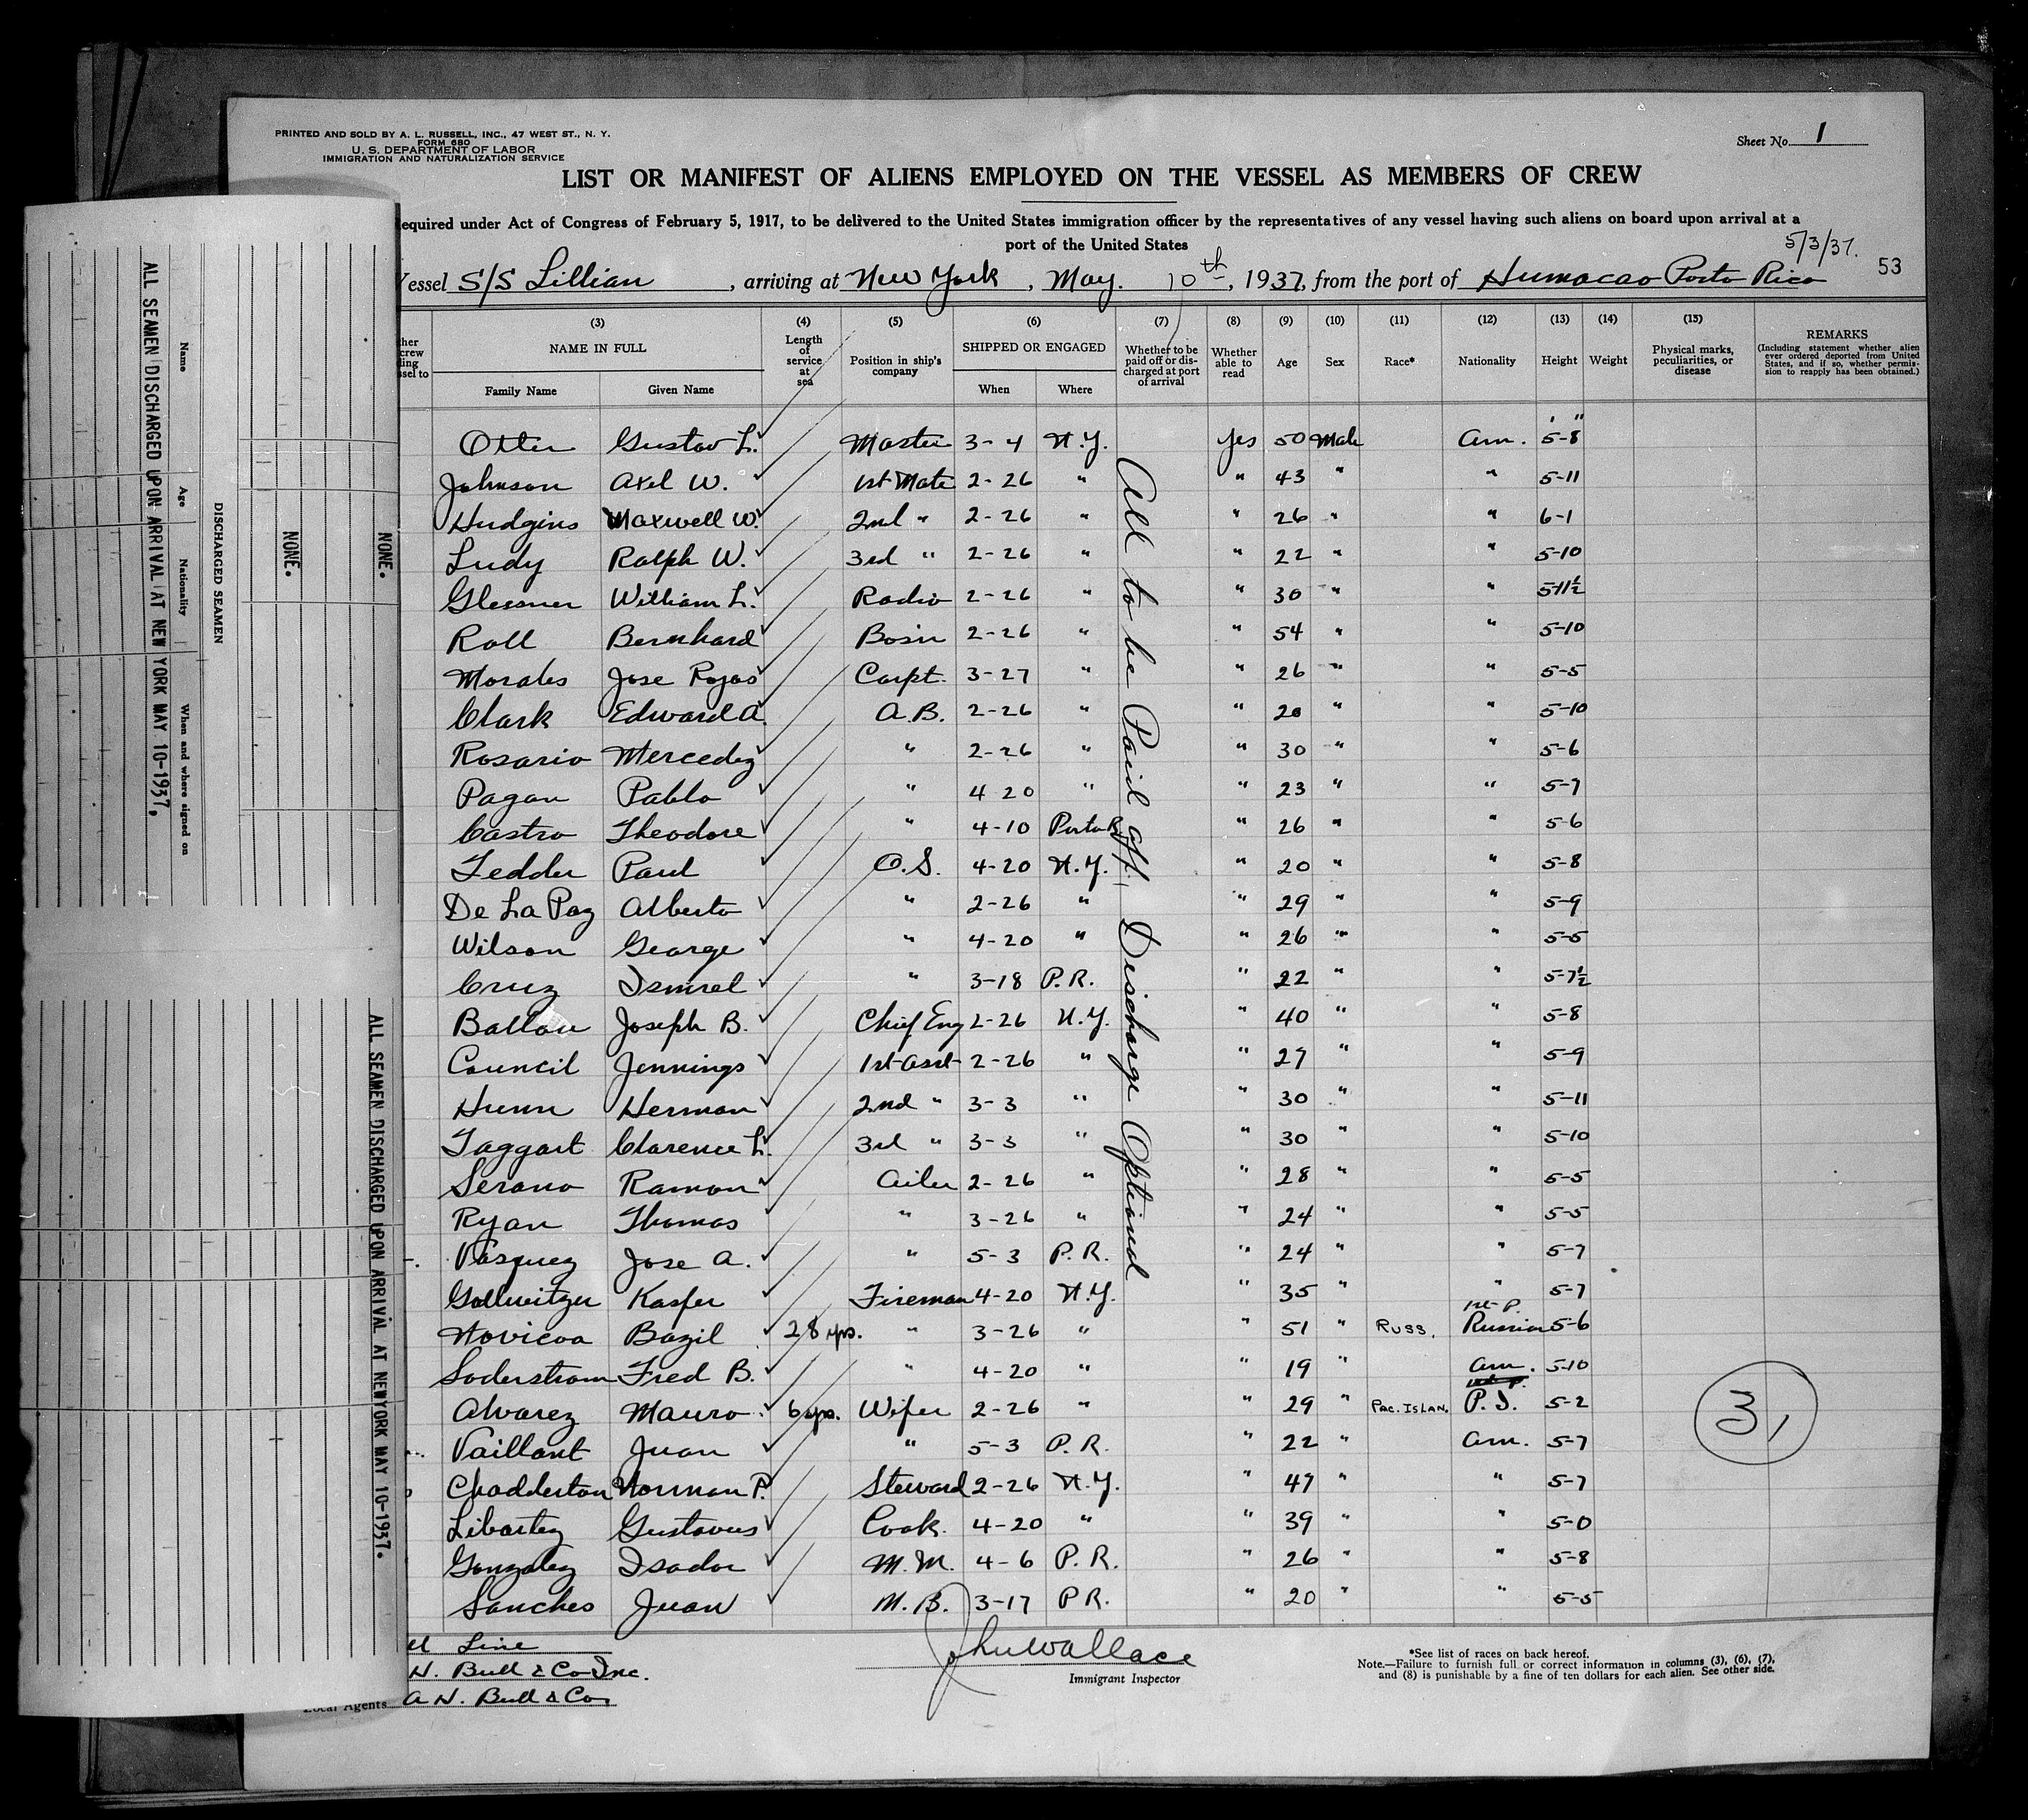 PRINTED AND SOLD BY A. L. RUSSELL, INC., 47 WEST ST., N. Y.
FORM 680
U. S. DEPARTMENT OF LABOR
IMMIGRATION AND NATURALIZATION SERVICE
Sheet No. 1
LIST OR MANIFEST OF ALIENS EMPLOYED ON THE VESSEL AS MEMBERS OF CREW
equired under Act of Congress of February 5, 1917, to be delivered to the United States immigration officer by the representatives of any vessel having such aliens on board upon arrival at a
port of the United States
5/3/37.
Vessel S/S Lillian, arriving at New York, May. 10th, 1937, from the port of Humacao Porto Rico
53
(3) (4) (5) (6) (7) (8) (9) (10) (11) (12) (13) (14) (15)
NAME IN FULL
Family Name Given Name
Length of service at sea
Position in ship's company
SHIPPED OR ENGAGED
When Where
Whether to be paid off or discharged at port of arrival
Whether able to read
Age Sex Race* Nationality Height Weight
Physical marks, peculiarities, or disease
REMARKS
(Including statement whether alien ever ordered deported from United States, and if so, whether permission to reapply has been obtained.)
Otter Gustav L. Master 3-4 N.Y. Yes 50 Male Am. 5-8
Johnson Axel W. 1st Mate 2-26 " " 43 " " 5-11
Hudgins Maxwell W. 2nd " 2-26 " " 26 " " 6-1
Ludy Ralph W. 3rd " 2-26 " " 22 " " 5-10
Glessner William L. Radio 2-26 " " 30 " " 5-11½
Roll Bernhard Bosin 2-26 " " 54 " " 5-10
Morales Jose Rojas Carpt. 3-27 " " 26 " " 5-5
Clark Edward A. A.B. 2-26 " " 20 " " 5-10
Rosario Mercedez " 2-26 " " 30 " " 5-6
Pagan Pablo " 4-20 " " 23 " " 5-7
Castro Theodore " 4-10 Porto R. " 26 " " 5-6
Tedder Paul O.S. 4-20 N.Y. " 20 " " 5-8
De La Paz Alberto " 2-26 " " 29 " " 5-9
Wilson George " 4-20 " " 26 " " 5-5
Cruz Ismrel " 3-18 P.R. " 22 " " 5-7½
Ballou Joseph B. Chief Eng 2-26 N.Y. " 40 " " 5-8
Council Jennings 1st Asst 2-26 " " 27 " " 5-9
Hunn Herman 2nd " 3-3 " " 30 " " 5-11
Taggart Clarence L. 3rd " 3-3 " " 30 " " 5-10
Serano Ramon Oiler 2-26 " " 28 " " 5-5
Ryan Thomas " 3-26 " " 24 " " 5-5
Vasquez Jose A. " 5-3 P.R. " 24 " " 5-7
Gollwitzer Kasper Fireman 4-20 N.Y. " 35 " " 5-7
1st-P.
Novicoa Bazil 28 yrs. " 3-26 " " 51 " RUSS. Russian 5-6
Soderstrom Fred B. " 4-20 " " 19 " Am. 5-10
Alvarez Mauro 6 yrs. Wiper 2-26 " " 29 " PAC. ISLAN. P.I. 5-2
Vaillant Juan " 5-3 P.R. " 22 " Am. 5-7
Chadderton Norman P. Steward 2-26 N.Y. " 47 " " 5-7
Libartez Gustavus Cook. 4-20 " " 39 " " 5-0
Gonzalez Isador M.M. 4-6 P.R. " 26 " " 5-8
Sanches Juan M.B. 3-17 P.R. " 20 " " 5-5
All to be Paid off. Discharge Optional
31
Line
H. Bull & Co Inc.
Local Agents A H. Bull & Co
John Wallace
Immigrant Inspector
*See list of races on back hereof.
Note.—Failure to furnish full or correct information in columns (3), (6), (7),
and (8) is punishable by a fine of ten dollars for each alien. See other side.
ALL SEAMEN DISCHARGED UPON ARRIVAL AT NEW YORK MAY 10-1937,
Name Age Nationality When and where signed on
DISCHARGED SEAMEN
NONE.
NONE.
ALL SEAMEN DISCHARGED UPON ARRIVAL AT NEWYORK MAY 10-1937.